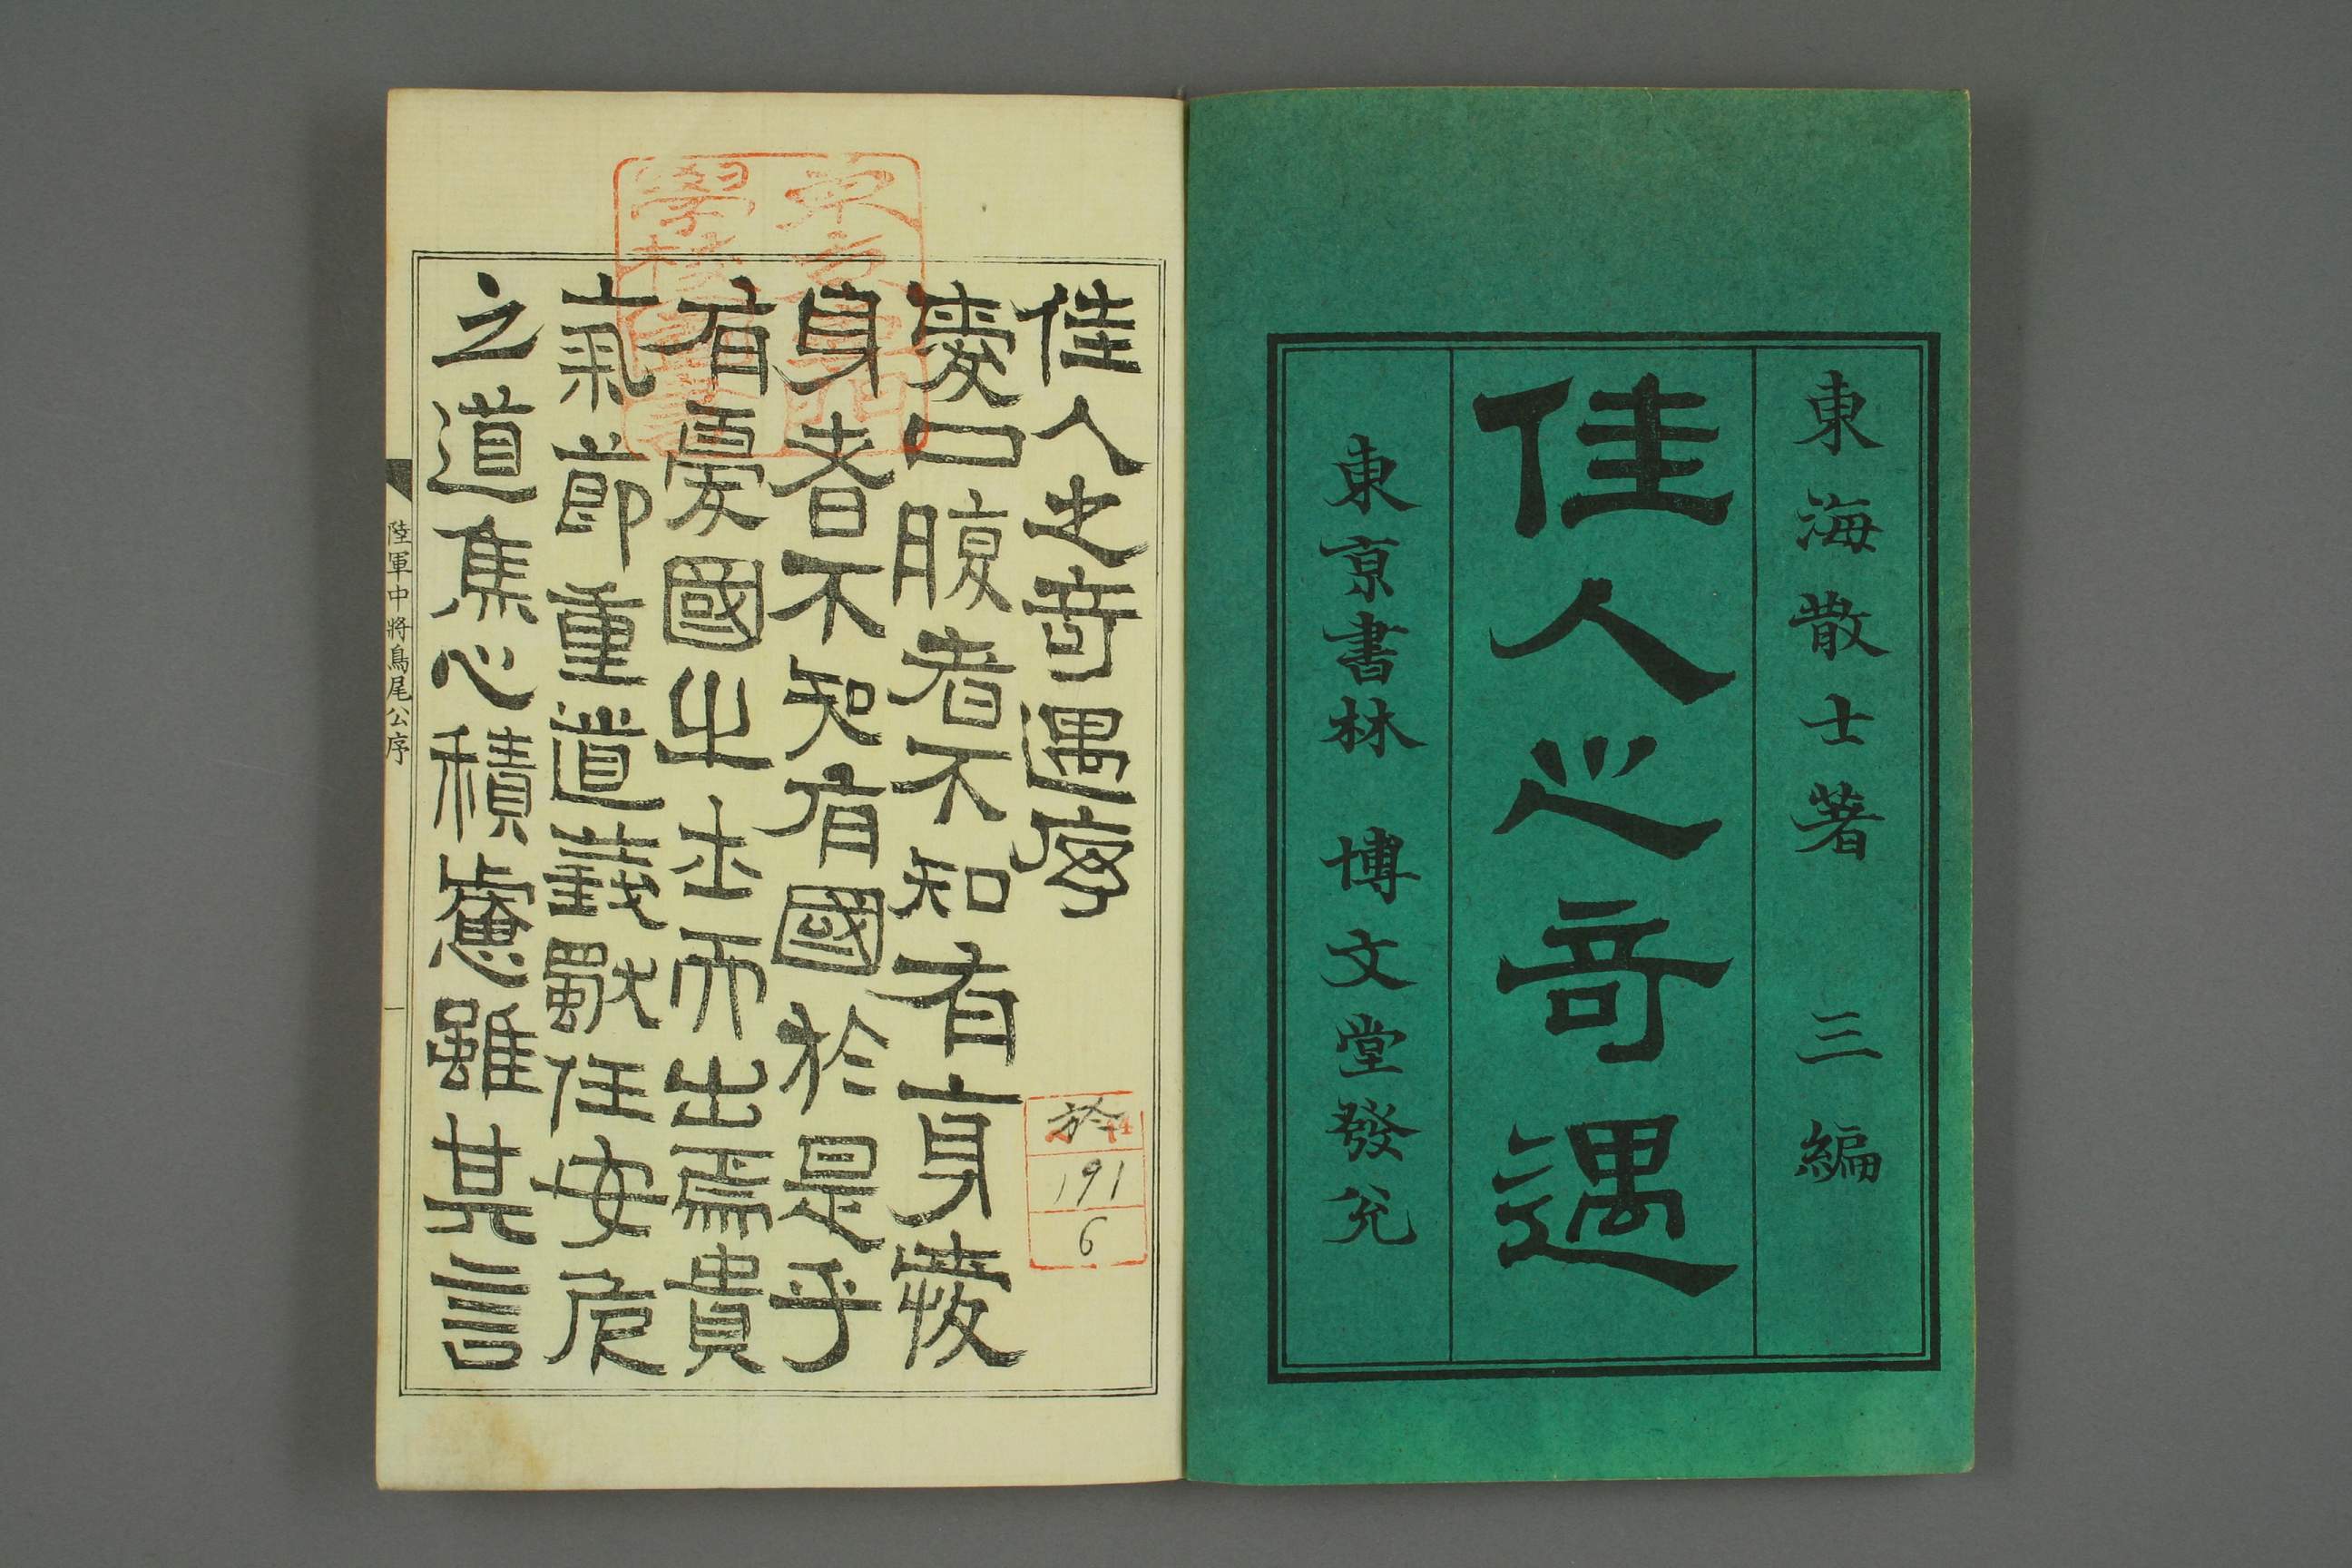 東海散士著 三編
佳人之奇遇
東京書林 博文堂發兌
佳人之奇遇序
憂口腹者不知有身憂
身者不知有國於是乎
有憂國之士而出焉貴
氣節重道義獻任安危
之道焦心積慮雖其言
陸軍中將鳥尾公序
一
191
6